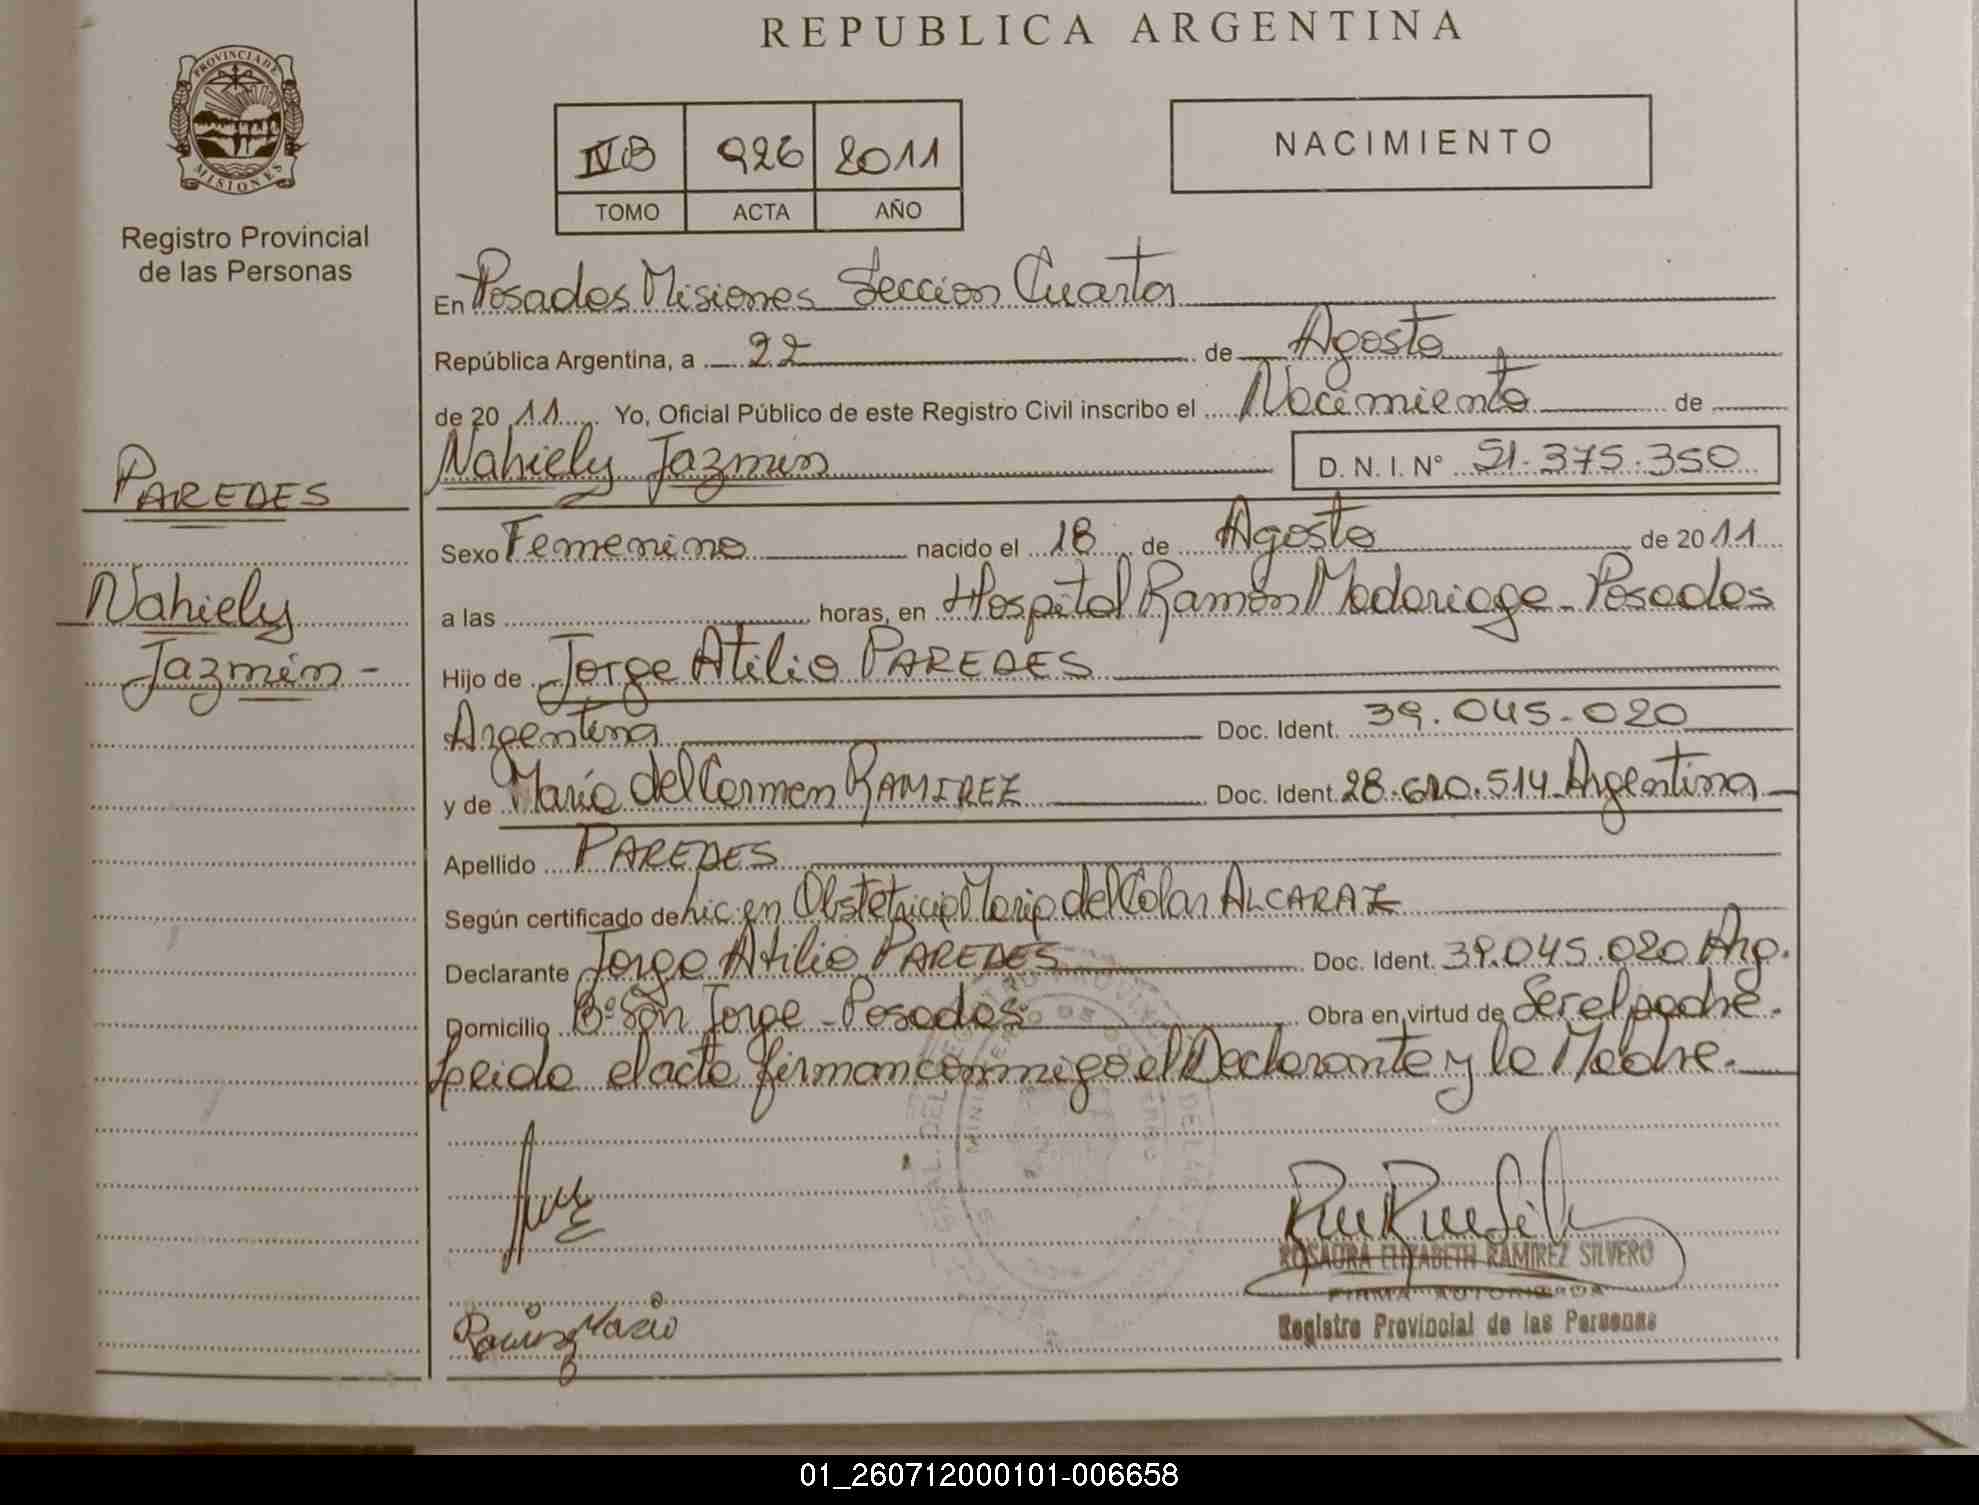 REPUBLICA ARGENTINA
PROVINCIA DE
MISIONES
Registro Provincial
de las Personas
IV B 926 2011
TOMO ACTA AÑO
NACIMIENTO
En Posadas Misiones Seccion Cuarta
República Argentina, a 22 de Agosto
de 20 11 Yo, Oficial Público de este Registro Civil inscribo el Nacimiento de
Nahiely Jazmin D. N. I. N° 51.375.350
PAREDES
Nahiely
Jazmin -
Sexo Femenino nacido el 18 de Agosto de 20 11
a las horas, en Hospital Ramón Madariaga - Posadas
Hijo de Jorge Atilio PAREDES
Argentina Doc. Ident. 39.045.020
y de María del Carmen RAMIREZ Doc. Ident. 28.610.514 - Argentina
Apellido PAREDES
Según certificado de Lic. en Obstetricia Maria del Colar ALCARAZ
Declarante Jorge Atilio PAREDES Doc. Ident. 39.045.020 Arg.
Domicilio B° San Jorge - Posadas Obra en virtud de Ser el padre.
Leido el acta firman conmigo el Declarante y la Madre.
Ramirez Maria
ROSAURA ELIZABETH RAMIREZ SILVERO
FIRMA AUTORIZADA
Registro Provincial de las Personas
01_260712000101-006658